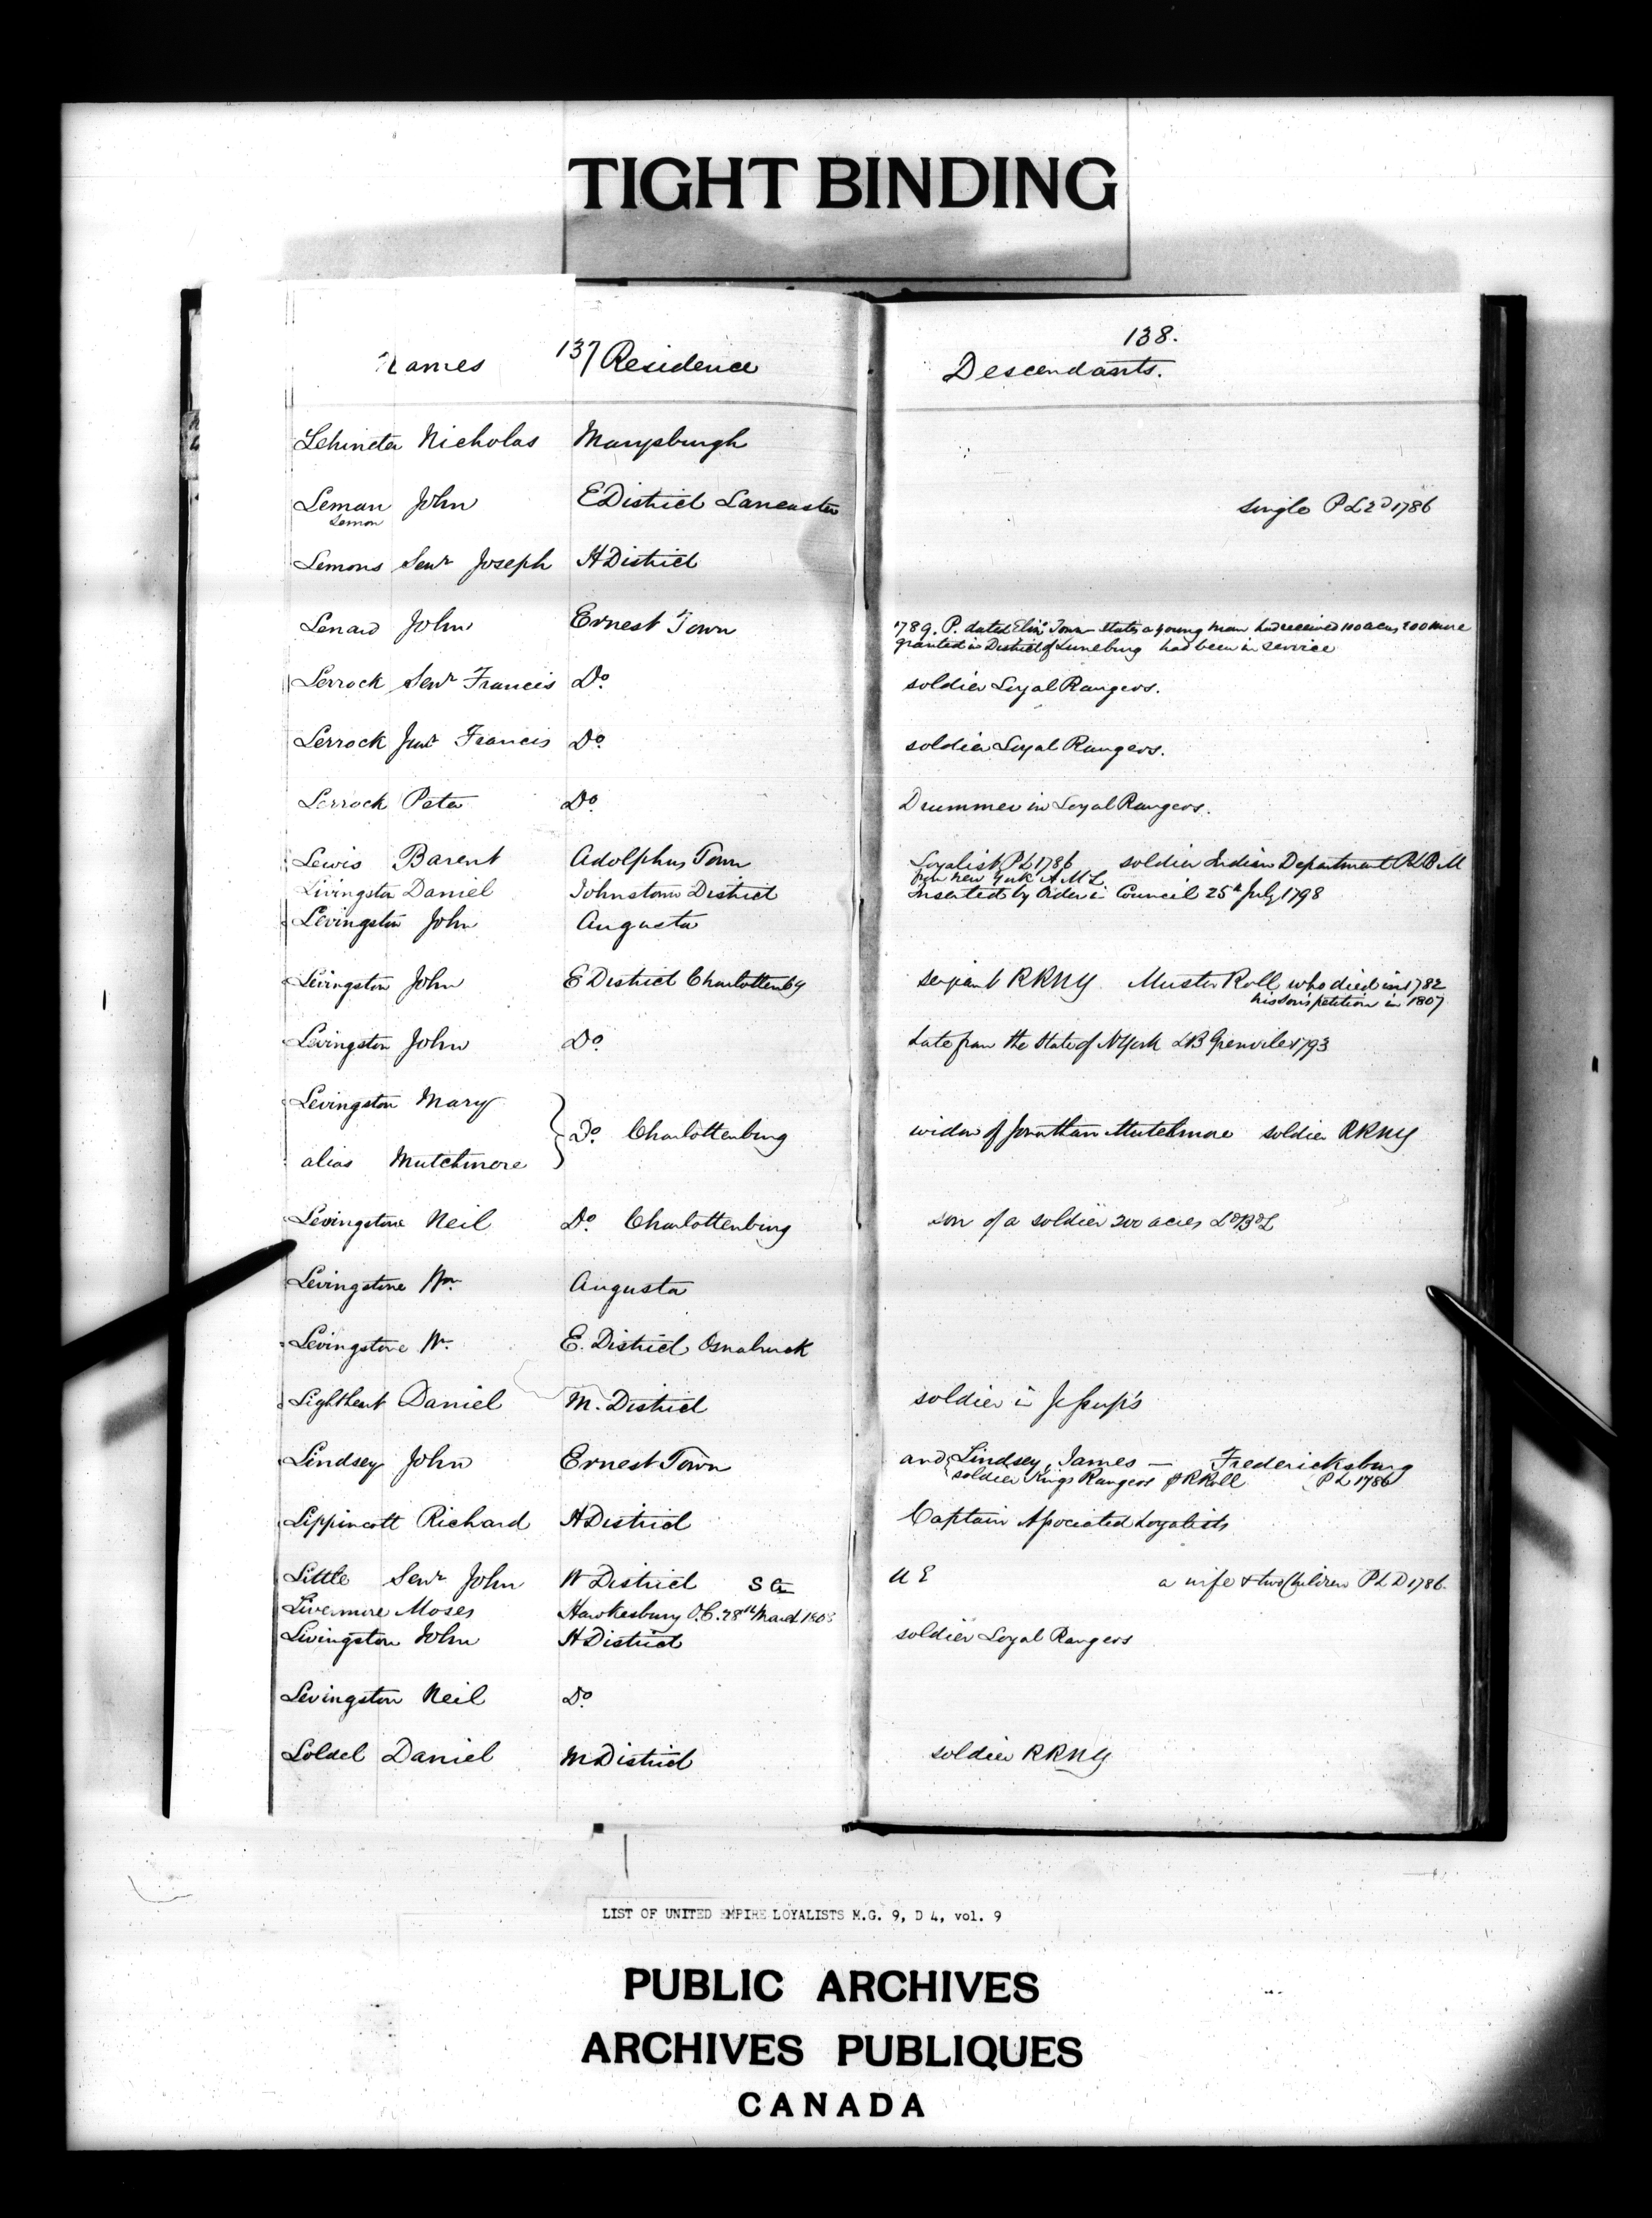 TIGHT BINDING
137
138.
Names Residence Descendants.
Lehinter Nicholas Marysburgh
Leman John E District Lancaster single P L 2d 1786
Lemon
Lemons Senr Joseph H District
Lenard John Ernest Town 1789. P. dated Elizh Town states a young man had received 100 acres 200 more
granted in District of Luneburg had been in service
Lerrock Senr Francis Do. soldier Loyal Rangers.
Lerrock Junr Francis Do. soldier Loyal Rangers.
Lerrock Peter Do. Drummer in Loyal Rangers.
Lewis Barent Adolphus Town Loyalist P L 1786 soldier Indian Department P L B M
from New York A M L
Livingston Daniel Johnstown District Inserted by Order in Council 25th July 1798
Levingston John Augusta
Levingston John E District Charlottenbg serjeant R R N Y Muster Roll who died in 1782
his son's petition in 1807
Levingston John Do. Late from the State of N York L B Grenville 1793
Levingston Mary
Do. Charlottenburg widow of Jonathan Mutchmore soldier R R N Y
alias Mutchmore
Levingstone Neil Do. Charlottenburg son of a soldier 200 acres
Levingstone Wm. Augusta
Levingstone W. E. District Osnabruck
Lightheart Daniel M. District soldier in Jessup's
Lindsey John Ernest Town and Lindsey, James — Fredericksburg
soldier Kings Rangers P R Roll P L 1786
Lippincott Richard H District Captain Associated Loyalists
Little Senr John W District S G U E a wife & two Children P L D 1786
Livermore Moses Hawkesbury O.C. 28th March 180
Livingston John H District soldier Loyal Rangers
Levingston Neil Do.
Loldel Daniel M District soldier R R N Y
LIST OF UNITED EMPIRE LOYALISTS M.G. 9, D 4, vol. 9
PUBLIC ARCHIVES
ARCHIVES PUBLIQUES
CANADA